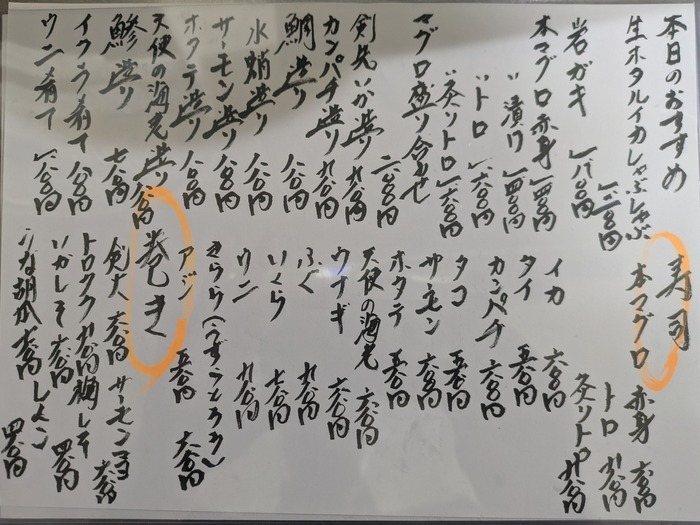 本日のおすすめ
生ホタルイカしゃぶしゃぶ 一二〇〇円
岩ガキ 一八〇〇円
本マグロ赤身 一四〇〇円
〃 漬け 一四〇〇円
〃 トロ 一六〇〇円
〃 炙りトロ 一六〇〇円
マグロ盛り合わせ 二六〇〇円
剣先いか造り 八〇〇円
カンパチ造り 九〇〇円
鯛造り 八〇〇円
水蛸造り 八〇〇円
サーモン造り 八〇〇円
ホタテ造り 八〇〇円
天使の海老造り 八〇〇円
鯵造り 七〇〇円
イクラ肴て 八〇〇円
ウニ肴て 一八〇〇円
寿司
本マグロ 赤身 六〇〇円
トロ 九〇〇円
炙りトロ 九〇〇円
イカ 六〇〇円
タイ 五〇〇円
カンパチ 六〇〇円
タコ 五〇〇円
サーモン 六〇〇円
ホタテ 五〇〇円
天使の海老 六〇〇円
ウナギ 六〇〇円
ふぐ 九〇〇円
いくら 七〇〇円
ウニ 九〇〇円
きらら(うずらとろろ) 六〇〇円
アジ 五〇〇円
巻き
剣大 六〇〇円 サーモンマヨ 六〇〇円
トロタク 九〇〇円 梅しそ 四〇〇円
いかしそ 六〇〇円
うな胡瓜 六〇〇円 しんこ 四〇〇円